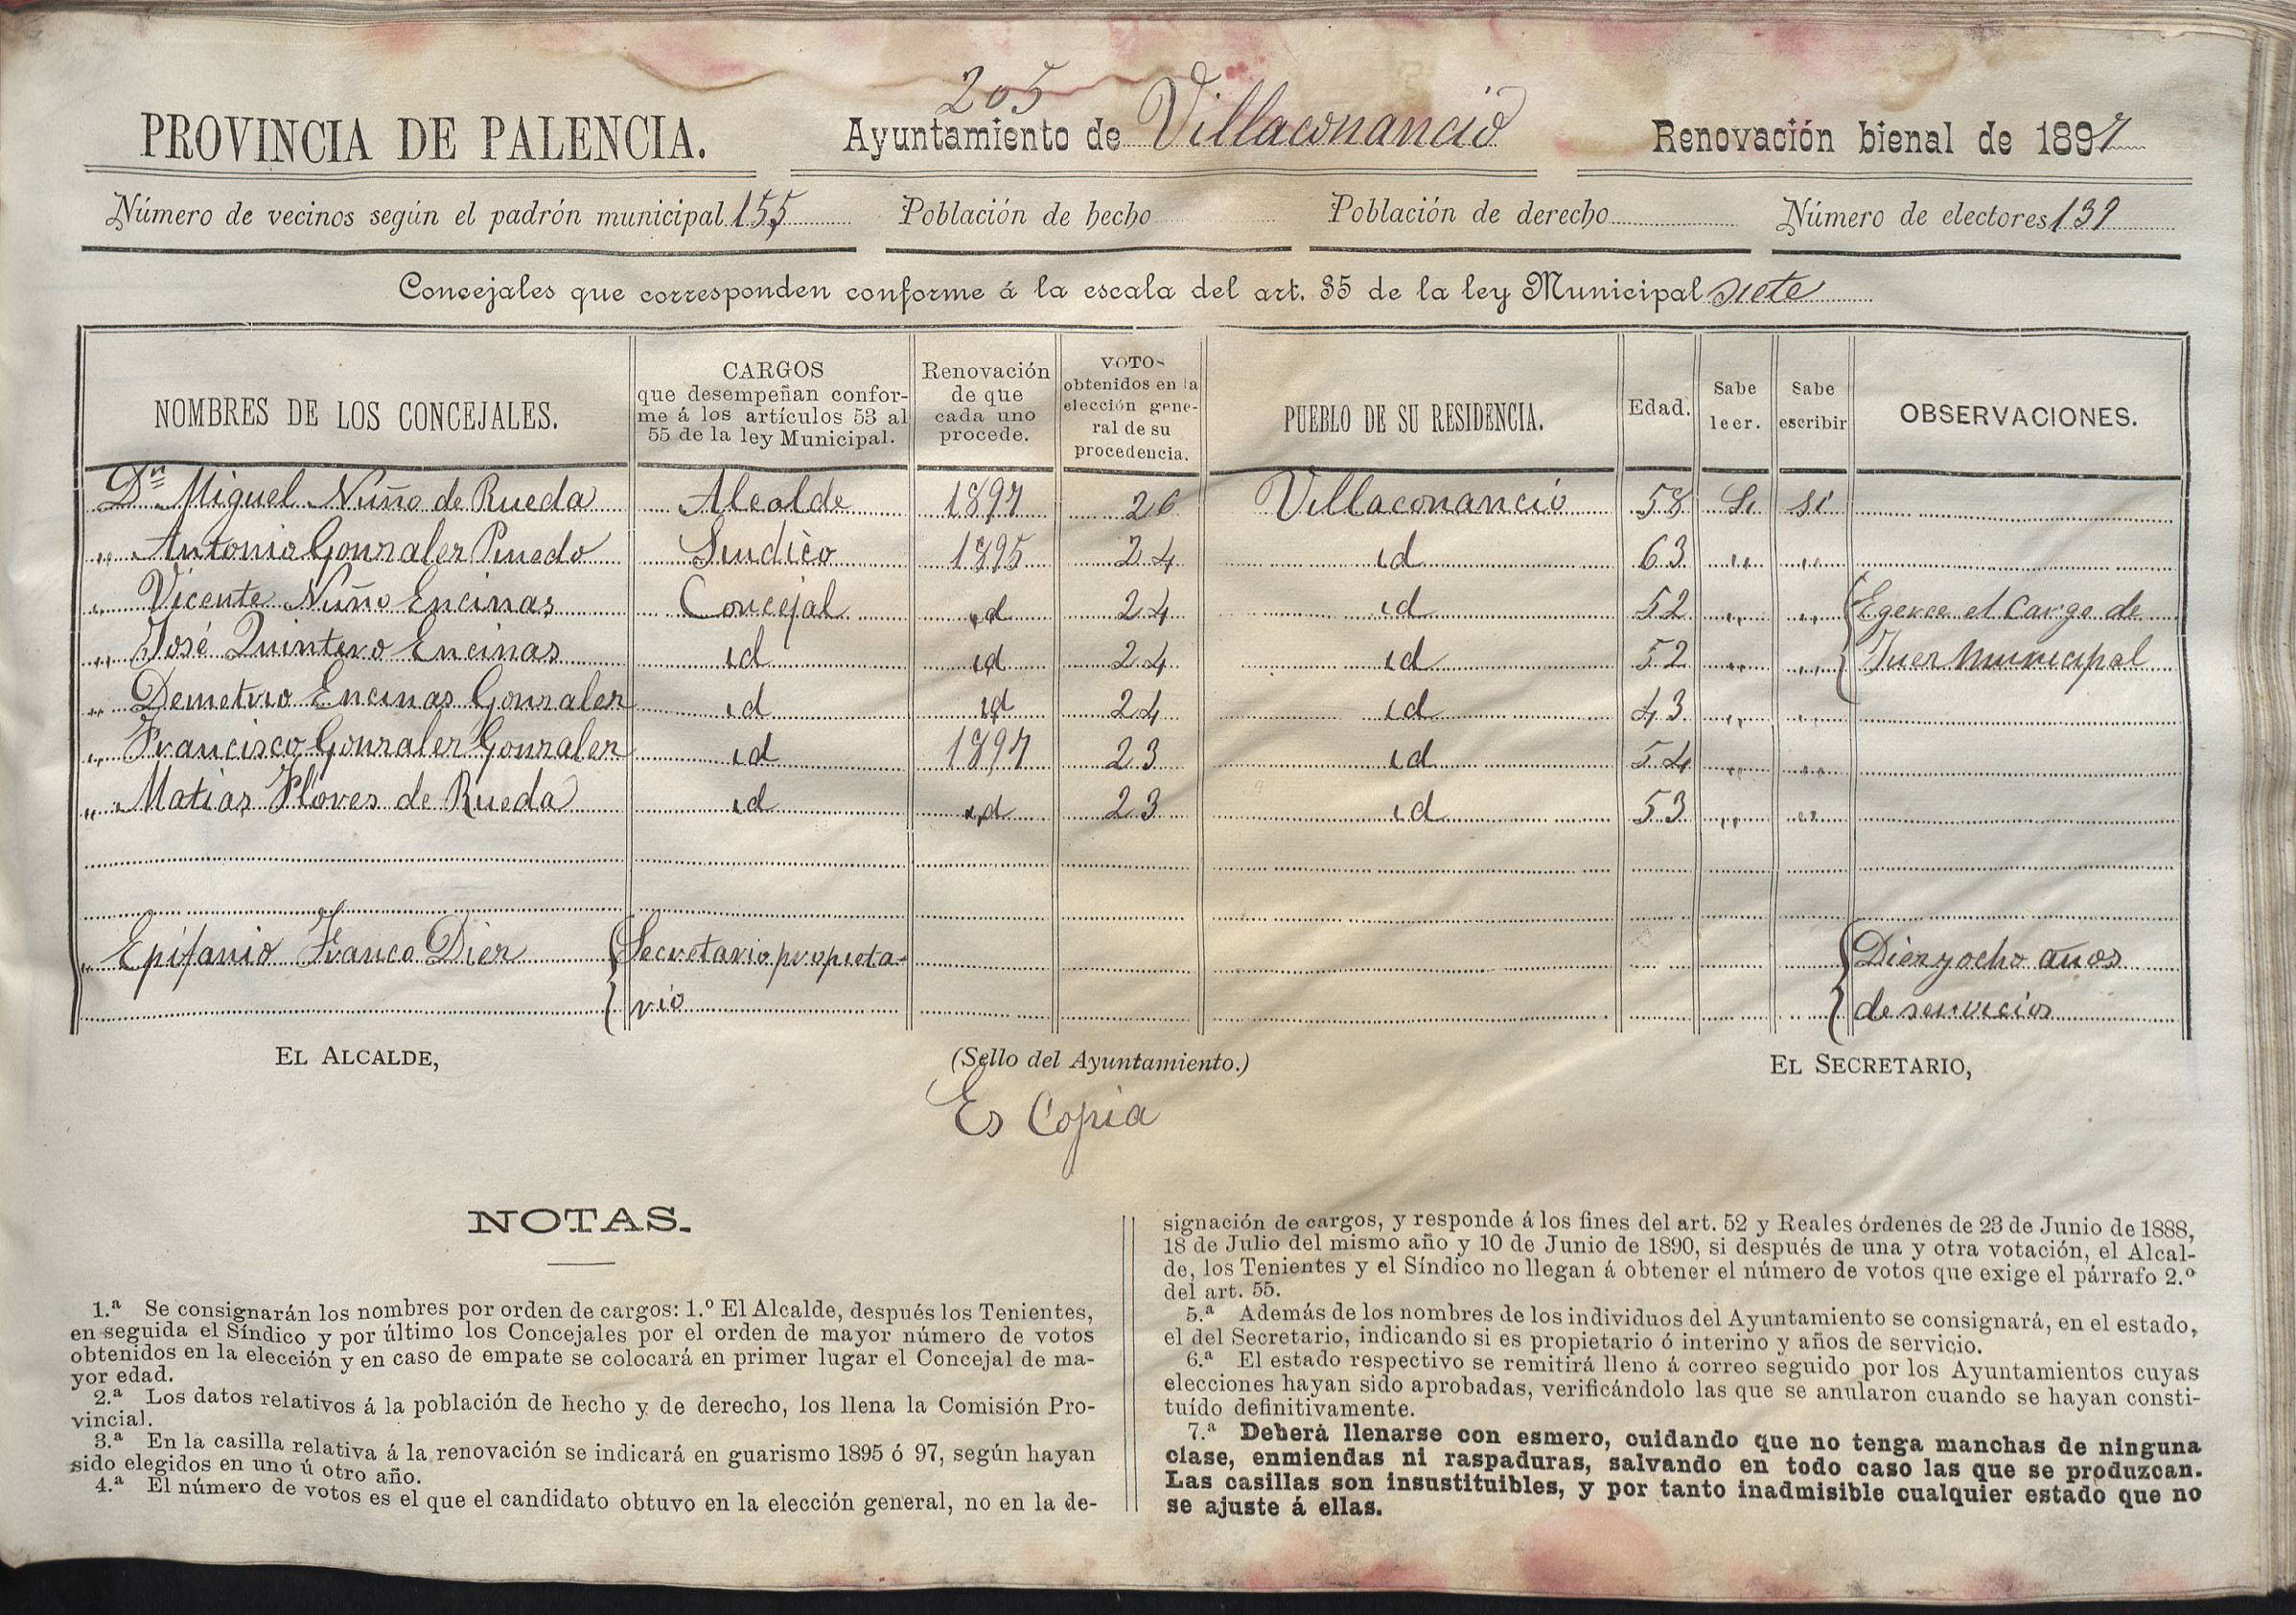 205
PROVINCIA DE PALENCIA. Ayuntamiento de Villaconancio Renovación bienal de 1897
Número de vecinos según el padrón municipal 155 Población de hecho Población de derecho Número de electores 139
Concejales que corresponden conforme á la escala del art. 35 de la ley Municipal siete
NOMBRES DE LOS CONCEJALES.
CARGOS
que desempeñan confor-
me á los artículos 53 al
55 de la ley Municipal.
Renovación
de que
cada uno
procede.
VOTOS
obtenidos en la
elección gene-
ral de su
procedencia.
PUEBLO DE SU RESIDENCIA.
Edad.
Sabe
leer.
Sabe
escribir
OBSERVACIONES.
Dn Miguel Nuño de Rueda Alcalde 1897 26 Villaconancio 58 Si si
„ Antonio Gonzalez Pinedo Sindico 1895 24 id 63 „ „
„ Vicente Nuño Encinas Concejal id 24 id 52 „ „ Egerce el Cargo de
„ José Quintero Encinas id id 24 id 52 „ „ Juez municipal
„ Demetrio Encinas Gonzalez id id 24 id 43 „ „
„ Francisco Gonzalez Gonzalez id 1897 23 id 54 „ „
„ Matias Flores de Rueda id id 23 id 53 „ „
„ Epifanio Franco Diez Secretario propieta- Diez y ocho años
rio de servicios
EL ALCALDE, (Sello del Ayuntamiento.) EL SECRETARIO,
Es Copia
NOTAS.
1.ª Se consignarán los nombres por orden de cargos: 1.º El Alcalde, después los Tenientes,
en seguida el Síndico y por último los Concejales por el orden de mayor número de votos
obtenidos en la elección y en caso de empate se colocará en primer lugar el Concejal de ma-
yor edad.
2.ª Los datos relativos á la población de hecho y de derecho, los llena la Comisión Pro-
vincial.
3.ª En la casilla relativa á la renovación se indicará en guarismo 1895 ó 97, según hayan
sido elegidos en uno ú otro año.
4.ª El número de votos es el que el candidato obtuvo en la elección general, no en la de-
signación de cargos, y responde á los fines del art. 52 y Reales órdenes de 23 de Junio de 1888,
18 de Julio del mismo año y 10 de Junio de 1890, si después de una y otra votación, el Alcal-
de, los Tenientes y el Síndico no llegan á obtener el número de votos que exige el párrafo 2.º
del art. 55.
5.ª Además de los nombres de los individuos del Ayuntamiento se consignará, en el estado,
el del Secretario, indicando si es propietario ó interino y años de servicio.
6.ª El estado respectivo se remitirá lleno á correo seguido por los Ayuntamientos cuyas
elecciones hayan sido aprobadas, verificándolo las que se anularon cuando se hayan consti-
tuído definitivamente.
7.ª Deberá llenarse con esmero, cuidando que no tenga manchas de ninguna
clase, enmiendas ni raspaduras, salvando en todo caso las que se produzcan.
Las casillas son insustituibles, y por tanto inadmisible cualquier estado que no
se ajuste á ellas.